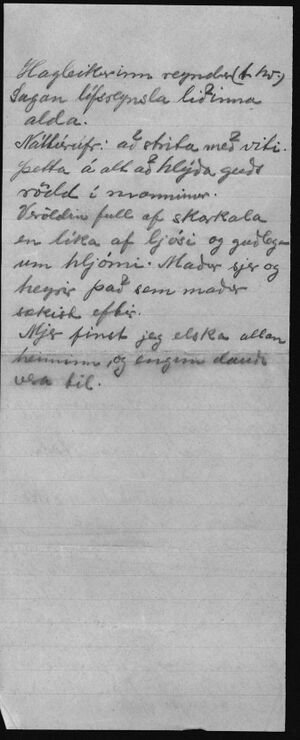 Hagleikurinn reyndur (t. kv.)
Sagan lífsreynsla liðinna
alda.
Náttúrufr: að strita með viti.
Þetta á alt að hlýða guðs
rödd í manninum.
Veröldin full af skarkala
en líka af ljósi og guðlegu
um hljómi. Maður sjer og
heyrir það sem maður
sækist eftir.
Mjer finst jeg elska allan
heiminn, og enginn dauði
vera til.